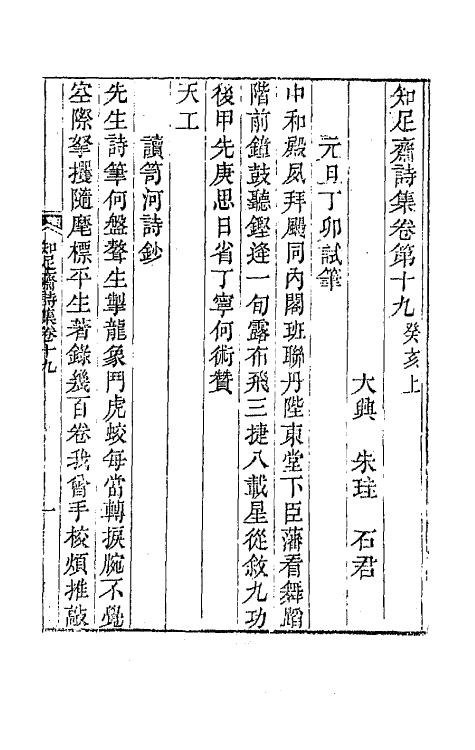 知足齋詩集卷第十九 癸亥上
大興 朱珪 石君
元旦丁卯試筆
中和殿夙拜颺同內閣班聯丹陛東堂下臣藩看舞蹈
階前鐘鼓聽鏗逄一旬露布飛三捷八載星從敘九功
後甲先庚思日省丁寧何術贊
天工
讀笥河詩鈔
先生詩筆何盤聱生掣龍象鬥虎蛟每當轉捩腕不覺
空際拏攫隨麾標平生著錄幾百卷我曾手校煩推敲
知足齋詩集卷十九
一